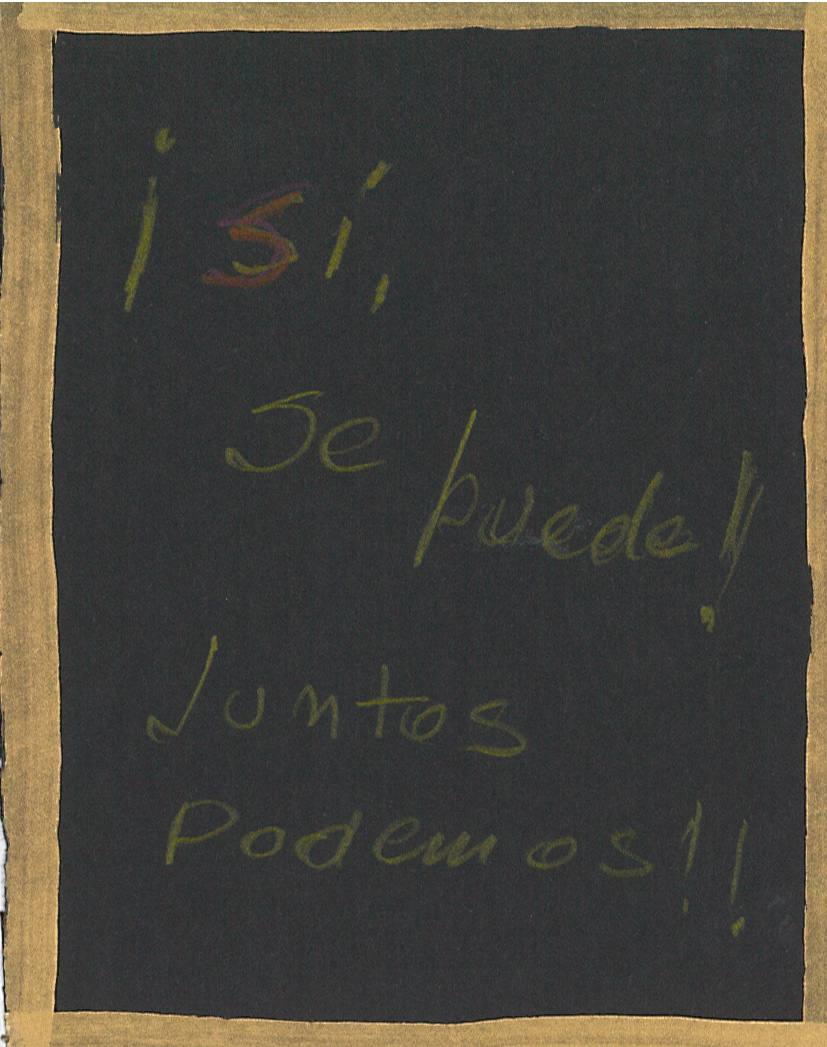 ¡Sí,
Se puede!!
Juntos
Podemos!!